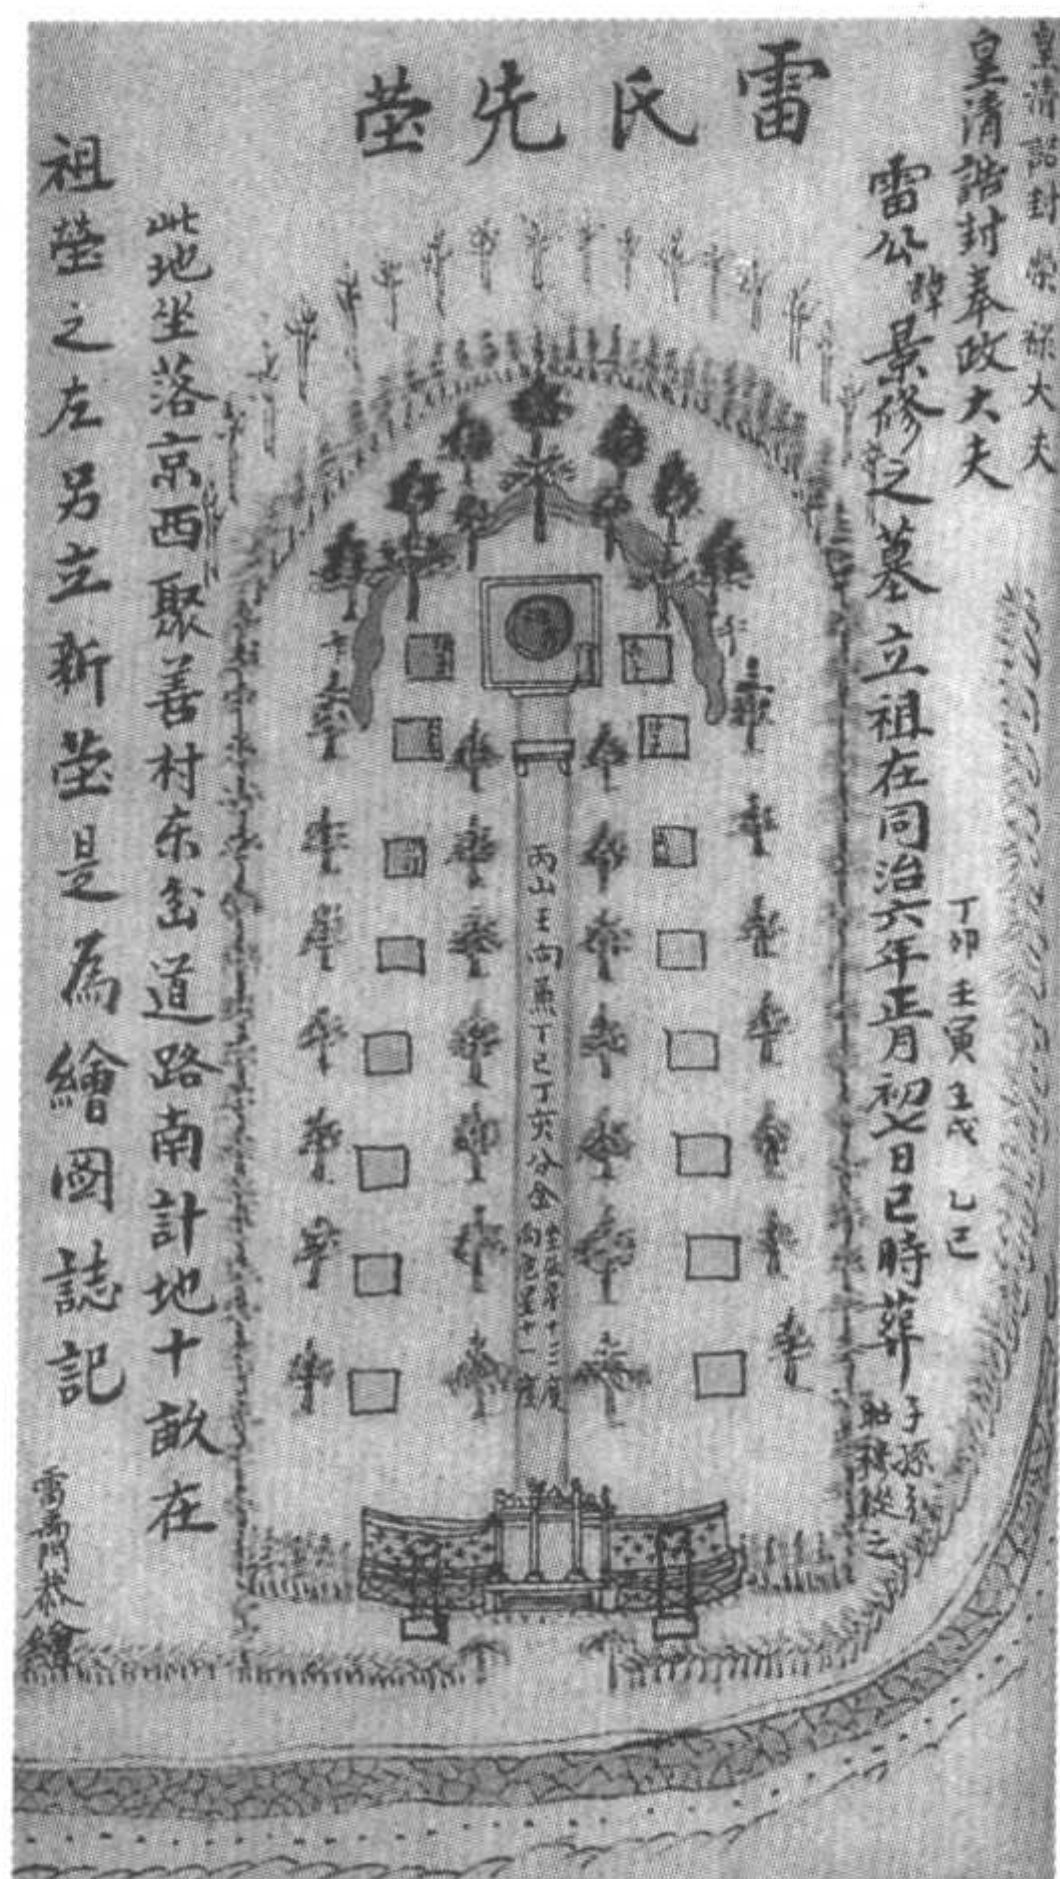 雷氏先茔
皇清誥封榮祿大夫
皇清誥封奉政大夫
雷公諱景修之墓立祖在同治六年正月初七日巳時葬
丁卯 壬寅 壬戌 乙巳
子孫
昭穆從之
丙山壬向兼丁巳丁亥分金
十三度
向危星十一度
此地坐落京西聚善村东岔道路南計地十畝在
祖塋之左另立新茔是為繪圖誌記
恭繪